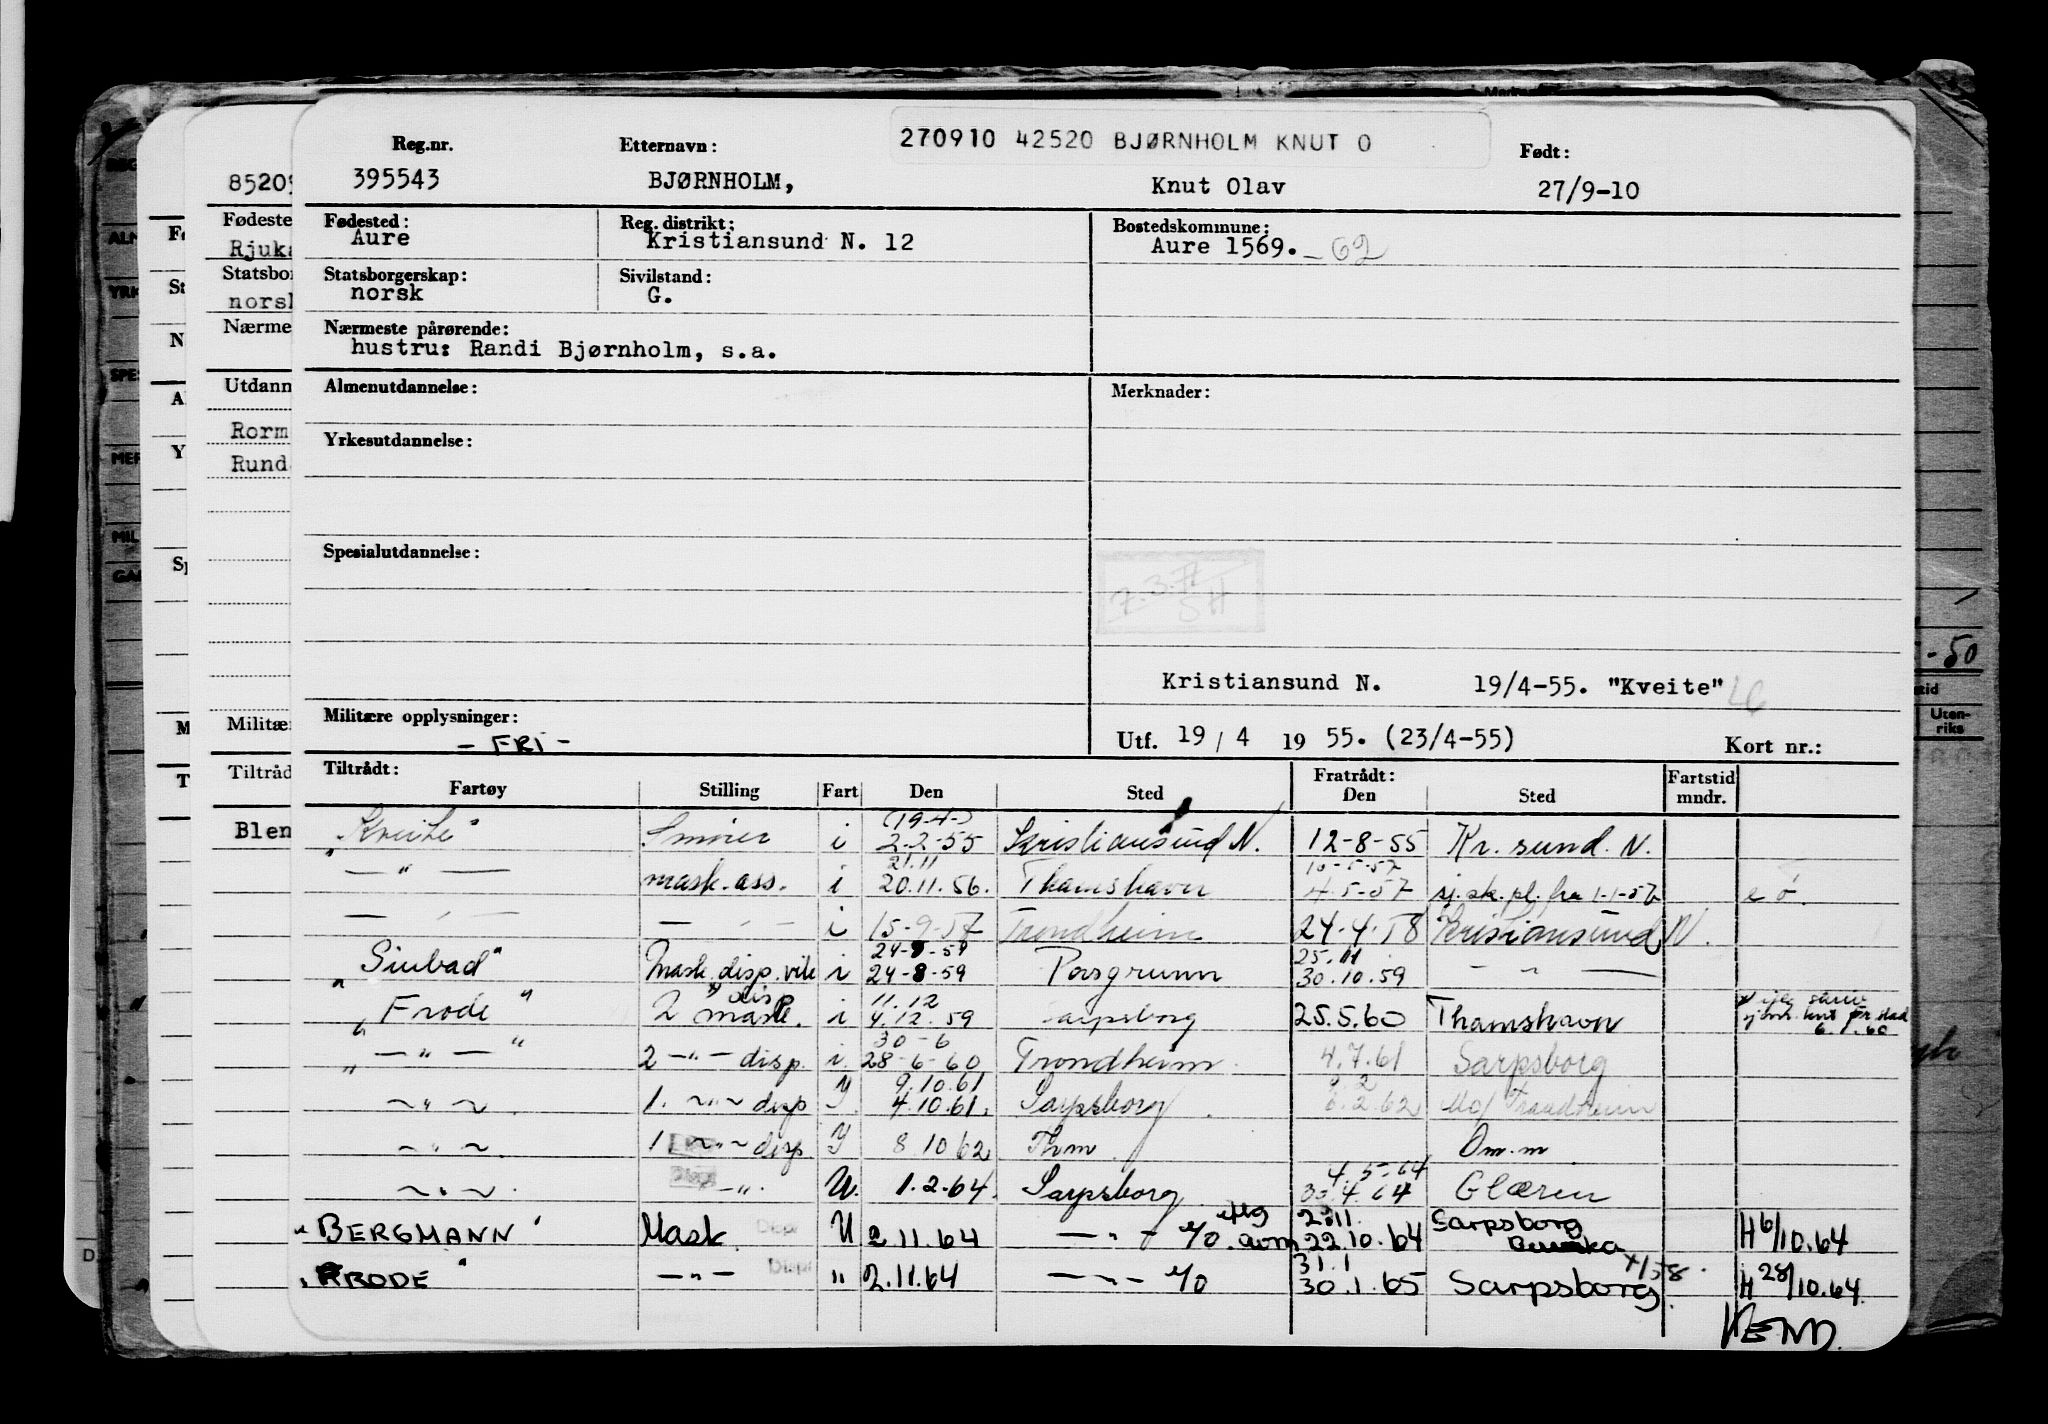 270910 42520 BJØRNHOLM KNUT O
Reg.nr. Etternavn: Født:
395543 BJØRNHOLM, Knut Olav 27/9-10
Fødested: Reg. distrikt: Bostedskommune:
Aure Kristiansund N. 12 Aure 1569. - 62
Statsborgerskap: Sivilstand:
norsk G.
Nærmeste pårørende:
hustru: Randi Bjørnholm, s.a.
Almenutdannelse: Merknader:
Yrkesutdannelse:
Spesialutdannelse:
Kristiansund N. 19/4-55. "Kveite"
Militære opplysninger:
- FRI -
Utf. 19/4 1955. (23/4-55) Kort nr.:
Tiltrådt: Fratrådt: Fartstid
Fartøy Stilling Fart Den Sted Den Sted mndr.
(19-4-)
"Kveite" Smører i 2-2-55 Kristiansund N. 12-8-55 Kr. sund. N.
21.11
— " — mask. ass. i 20.11.56. Thamshavn 4-5-57 sj.sk.pl. fra 1-1-57
— " — — " — i 15-9-57 Trondheim 24-4-58 Kristiansund N.
24-8-59 25.11
"Sinbad" Mask. disp. vik i 24-8-59 Porsgrunn 30.10.59 — " —
disp 11.12
"Frode" 2 mask. i 4.12.59 Sarpsborg 25.5.60 Thamshavn
6.1.60
30-6
— " — 2 — " — disp. i. 28-6-60 Trondheim. 4.7.61 Sarpsborg
9.10.61 9.2
— " — 1. — " — disp 4.10.61. Sarpsborg 6.2.62 Mo/Trondheim
— " — 1 — " — disp 8 10 62 Thm. Om.m
4.5.64
— " — — " — U. 1.2.64. Sarpsborg 30.4.64 Glæren
2.11.
"BERGMANN" Mask. Disp U 2.11.64 — " — 22.10.64 Sarpsborg H 6/10.64
31.1
"FRODE" — " — Disp " 2.11.64 — " — 30.1.65 Sarpsborg. H 28/10.64.
VEND.
85209
Fødeste
Rjuka
Statsbor
norsk
Nærme
Utdann
Rorm
Rund
Militær
Tiltråd
Blen
-50
Uten-
riks